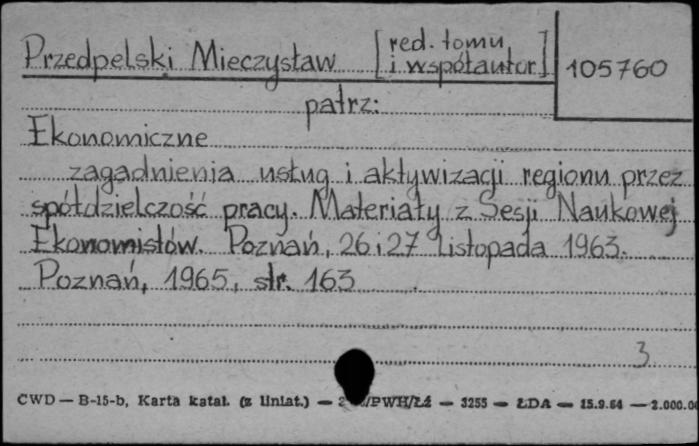 Przedpelski Mieczysław [red. tomu
i współautor]
105760
patrz:
Ekonomiczne
zagadnienia usług i aktywizacji regionu przez
spółdzielczość pracy. Materiały z Sesji Naukowej
Ekonomistów. Poznań, 26 i 27 listopada 1963.
Poznań, 1965, str. 163
3
CWD — B-15-b, Karta katal. (z liniat.) — /PWH/Łź — 3255 — ŁDA — 15.9.64 — 2.000.0